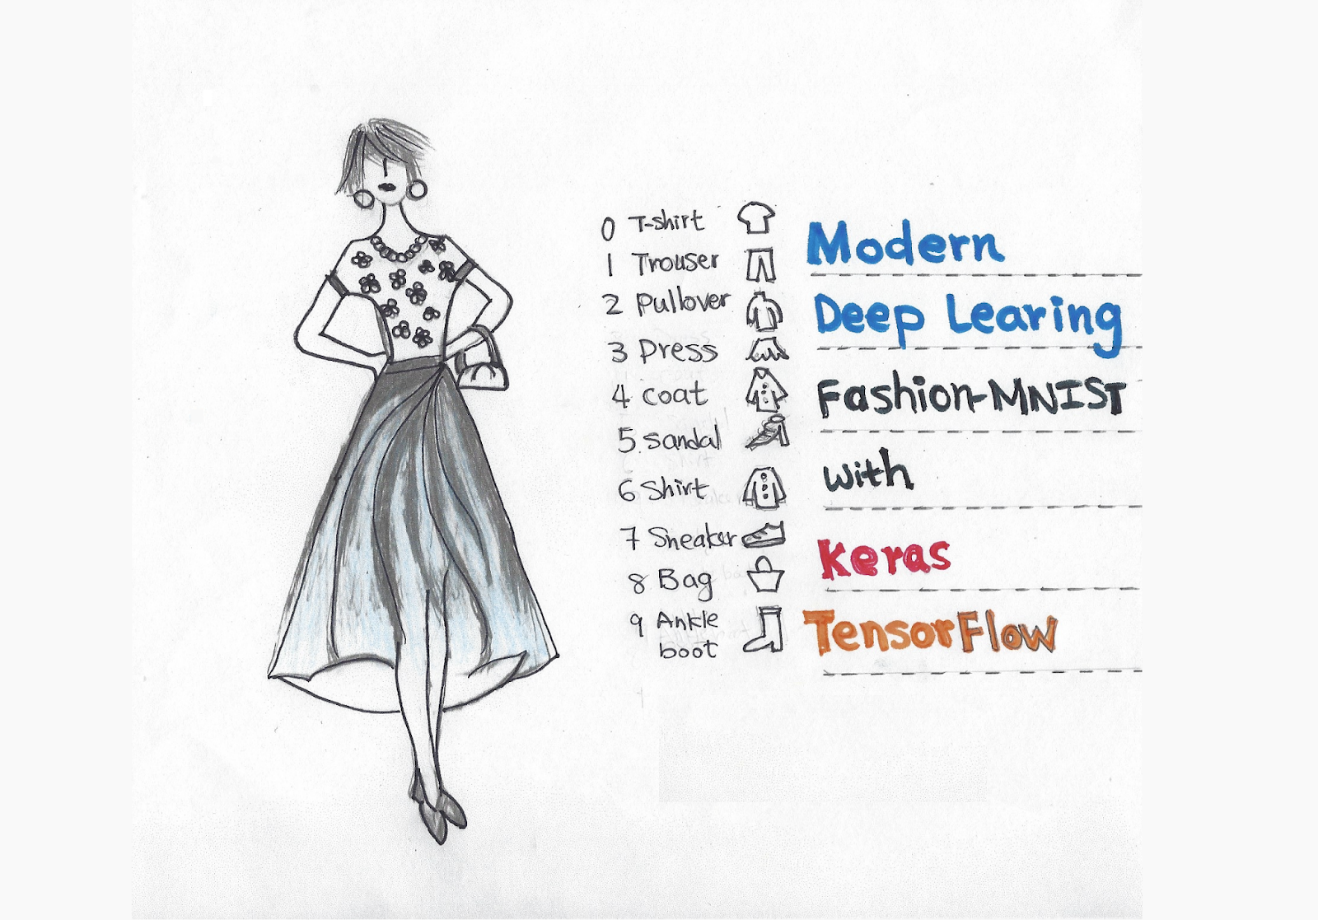 0 T-shirt
1 Trouser
2 Pullover
3 Dress
4 coat
5. Sandal
6 Shirt
7 Sneaker
8 Bag
9 Ankle
boot
Modern
Deep Learing
Fashion-MNIST
with
Keras
TensorFlow